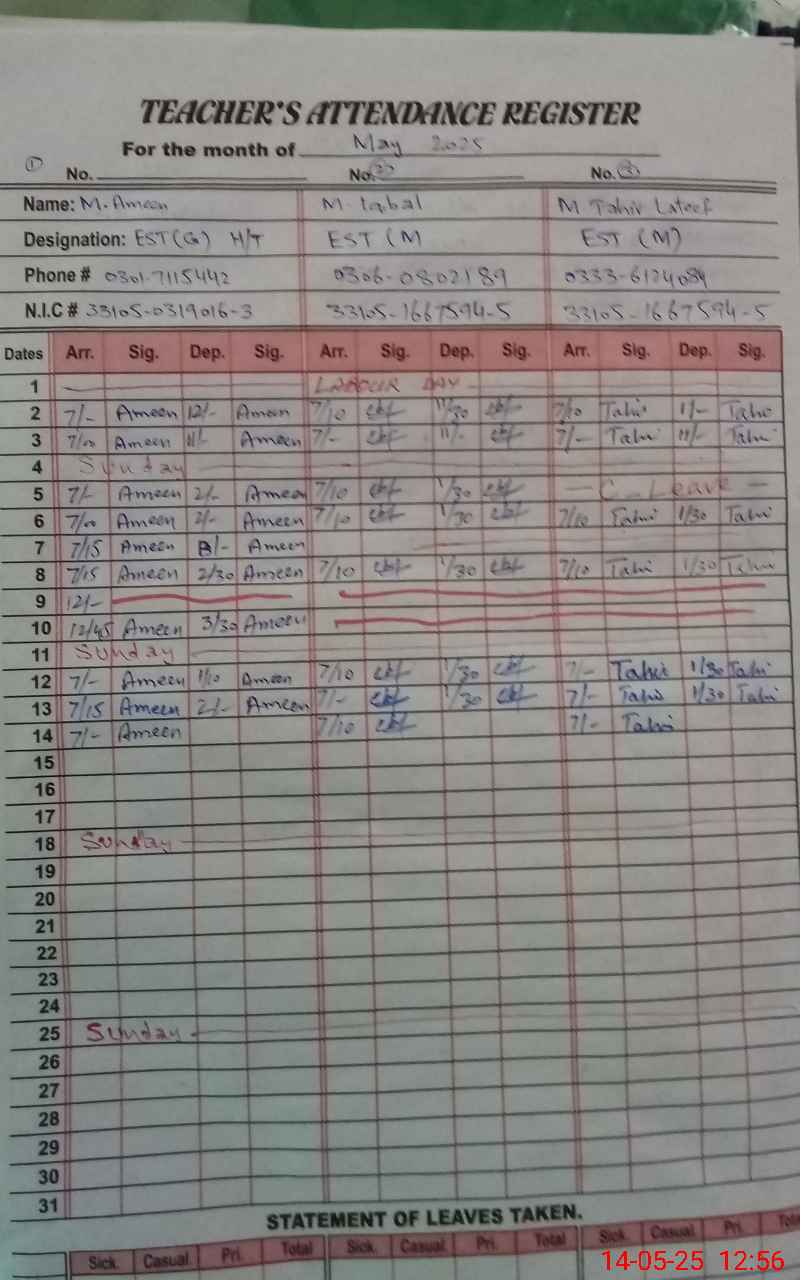 TEACHER'S ATTENDANCE REGISTER
For the month of May 2025
① No. No. ② No. ③
Name: M. Ameen M. Iqbal M. Tahir Lateef
Designation: EST (G) H/T EST (M EST (M)
Phone # 0301-7115442 0306-0802189 0333-6124084
N.I.C # 33105-0319016-3 33105-1667594-5 33105-1667594-5
Dates Arr. Sig. Dep. Sig. Arr. Sig. Dep. Sig. Arr. Sig. Dep. Sig.
1 LABOUR DAY
2 7/- Ameen 12/- Ameen 7/10 11/30 7/10 Tahir 11/- Tahir
3 7/00 Ameen 11/- Ameen 7/- 11/- 7/- Tahir 11/- Tahir
4 Sunday
5 7/- Ameen 2/- Ameen 7/10 1/30 C. Leave
6 7/00 Ameen 2/- Ameen 7/10 1/30 7/10 Tahir 1/30 Tahir
7 7/15 Ameen Ameen
8 7/15 Ameen 2/30 Ameen 7/10 1/30 7/10 Tahir 1/30 Tahir
9 12/-
10 12/45 Ameen 3/30 Ameen
11 Sunday
12 7/- Ameen 1/10 Ameen 7/10 1/30 7/- Tahir 1/30 Tahir
13 7/15 Ameen 2/- Ameen 7/- 1/30 7/- Tahir 1/30 Tahir
14 7/- Ameen 7/10 7/- Tahir
15
16
17
18 Sunday
19
20
21
22
23
24
25 Sunday
26
27
28
29
30
31
STATEMENT OF LEAVES TAKEN.
Sick. Casual. Pri. Total Sick. Casual. Pri. Total Sick. Casual. Pri. Total
14-05-25 12:56